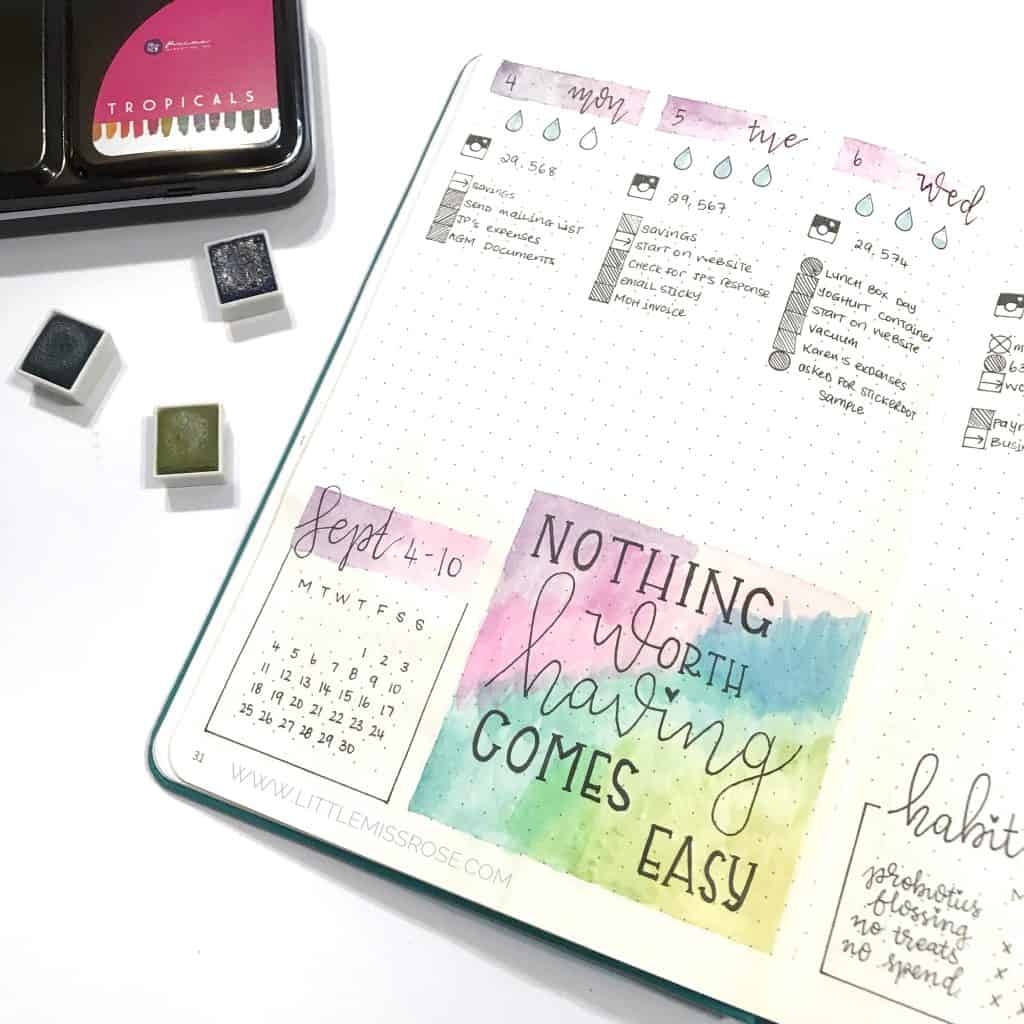 Prima
TROPICALS
4 mon
29,568
savings
SEND MAILING LIST
JP's expenses
AGM DOCUMENTS
5 tue
29,567
savings
START ON WEBSITE
CHECK FOR JP'S RESPONSE
email sticky
MDH INVOICE
6 wed
29,574
LUNCH BOX DAY
YOGHURT CONTAINER
START ON WEBSITE
VACUUM
Karen's expenses
asked for stickerdot
sample
63
Sept 4-10
M T W T F S S
1 2 3
4 5 6 7 8 9 10
11 12 13 14 15 16 17
18 19 20 21 22 23 24
25 26 27 28 29 30
31
NOTHING
WORTH
having
COMES
EASY
habit
M
probiotics
flossing
no treats
no spend
WWW.LITTLEMISSROSE.COM